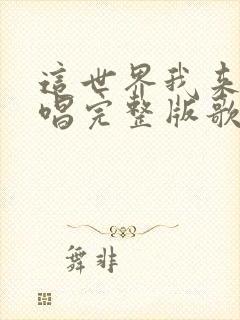 這世界我来
唱完整版歌
舞非